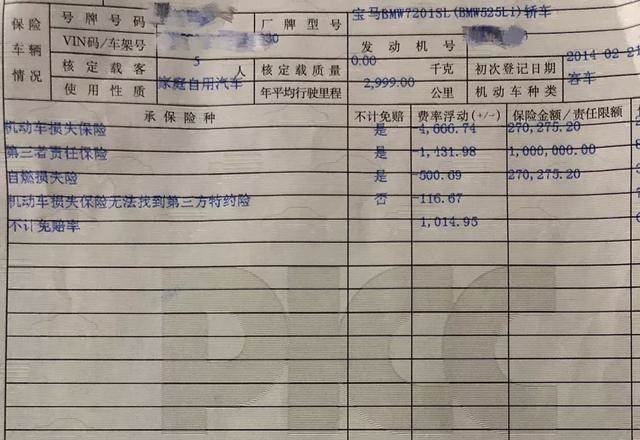 保险车辆情况
号牌号码 厂牌型号 宝马BMW7201SL(BMW525Li)轿车
VIN码/车架号 发动机号
核定载客 5 人 核定载质量 0.00 千克 初次登记日期 2014-02-21
使用性质 家庭自用汽车 年平均行驶里程 2,999.00 公里 机动车种类 客车
承保险种 不计免赔 费率浮动(+/-) 保险金额/责任限额
机动车损失保险 是 -4,666.74 270,275.20
第三者责任保险 是 -1,431.98 1,000,000.00
自燃损失险 是 -500.69 270,275.20
机动车损失保险无法找到第三方特约险 否 -116.67
不计免赔率 1,014.95